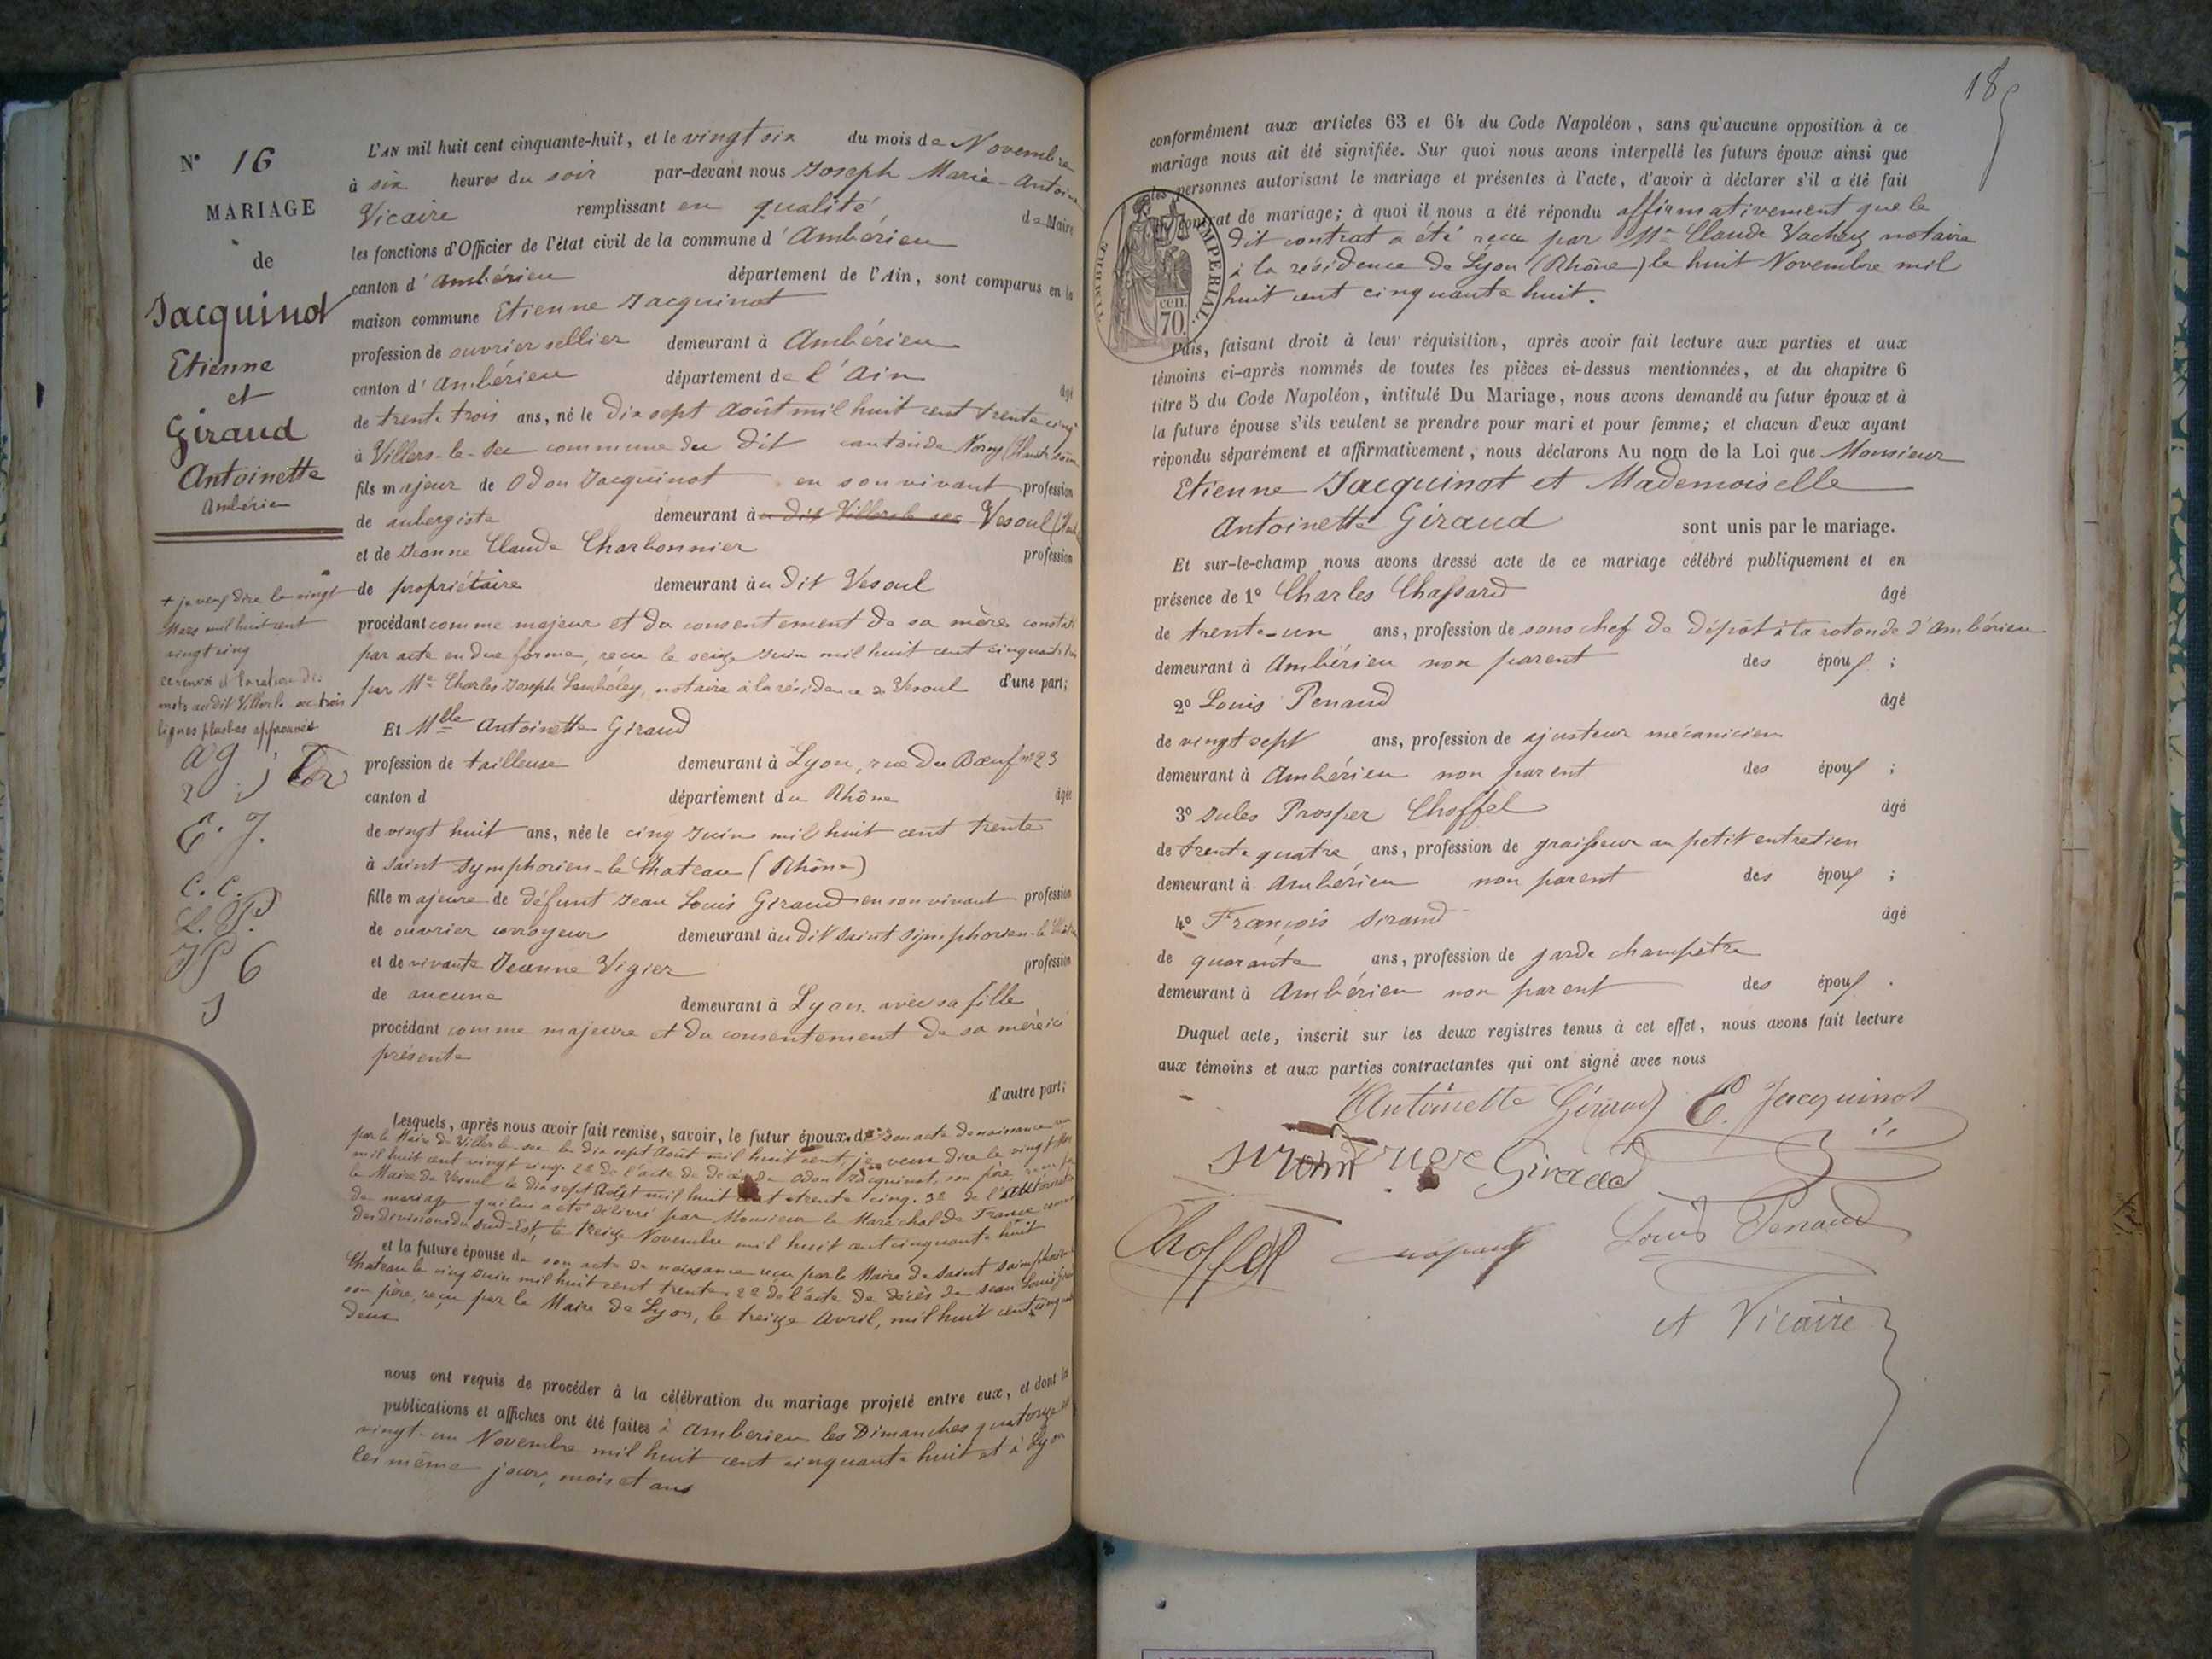 N° 16
MARIAGE
de
Jacquinot
Etienne
et
Giraud
Antoinette
Ambérieu
+ je veux dire le vingt
Mars mil huit cent
vingt cinq
mots au dit Villers le sec trois
lignes plus bas approuvés
a g
E. J.
C. C.
L. P.
L'AN mil huit cent cinquante-huit, et le vingt six du mois de Novembre
à six heures du soir par-devant nous Joseph Marie-Antoine
Vicaire remplissant en qualité de Maire
les fonctions d'Officier de l'état civil de la commune d'Ambérieu
canton d'Ambérieu département de l'Ain, sont comparus en la
maison commune Etienne Jacquinot
profession de ouvrier sellier demeurant à Ambérieu
canton d'Ambérieu département de l'Ain âgé
de trente trois ans, né le dix sept Août mil huit cent trente cinq
à Villers-le-Sec commune du dit canton de Noroy (Haute Saône
fils majeur de Odon Jacquinot en son vivant profession
de aubergiste demeurant à au dit Villers le sec Vesoul
et de Jeanne Claude Charbonnier profession
de propriétaire demeurant au dit Vesoul
procédant comme majeur et du consentement de sa mère constaté
par acte en due forme, reçu le seize Juin mil huit cent cinquante
par Me Charles Joseph notaire à la résidence de Vesoul d'une part;
Et Mlle Antoinette Giraud
profession de tailleuse demeurant à Lyon, rue du Bœuf n° 23
canton d département du Rhône âgée
de vingt huit ans, née le cinq Juin mil huit cent trente
à Saint Symphorien-le-Chateau (Rhône)
fille majeure de défunt Jean Louis Giraud en son vivant profession
de ouvrier corroyeur demeurant au dit Saint Symphorien-le
et de vivante Jeanne Vigier profession
de aucune demeurant à Lyon avec sa fille
procédant comme majeure et du consentement de sa mère ici
présente
d'autre part;
Lesquels, après nous avoir fait remise, savoir, le futur époux de son acte de naissance
par le Maire de Villers le sec le dix sept Août mil huit cent, je veux dire le vingt Mars
mil huit cent vingt cinq. 2° de l'acte de décès de Odon Jacquinot, son père, reçu par
le Maire de Vesoul le dix sept Août mil huit cent trente cinq. 3° de l'autorisation
de mariage qui lui a été délivré par Monsieur le Maréchal de France
des divisions du Sud-Est, le treize Novembre mil huit cent cinquante huit
et la future épouse de son acte de naissance reçu par le Maire de Saint Saimphorien
Chateau le cinq Juin mil huit cent trente. 2° de l'acte de décès de Jean Louis
son père, reçu par le Maire de Lyon, le treize Avril, mil huit cent cinquante
deux
nous ont requis de procéder à la célébration du mariage projeté entre eux, et dont les
publications et affiches ont été faites à Ambérieu les Dimanches quatorze et
vingt-un Novembre mil huit cent cinquante huit et à Lyon
les même jour, mois et ans
18
conformément aux articles 63 et 64 du Code Napoléon, sans qu'aucune opposition à ce
mariage nous ait été signifiée. Sur quoi nous avons interpellé les futurs époux ainsi que
les personnes autorisant le mariage et présentes à l'acte, d'avoir à déclarer s'il a été fait
contrat de mariage; à quoi il nous a été répondu affirmativement que le
dit contrat a été reçu par Me Claude Vachez notaire
à la résidence de Lyon (Rhône) le huit Novembre mil
huit cent cinquante huit.
TIMBRE IMPERIAL
70 cen.
Puis, faisant droit à leur réquisition, après avoir fait lecture aux parties et aux
témoins ci-après nommés de toutes les pièces ci-dessus mentionnées, et du chapitre 6
titre 5 du Code Napoléon, intitulé Du Mariage, nous avons demandé au futur époux et à
la future épouse s'ils veulent se prendre pour mari et pour femme; et chacun d'eux ayant
répondu séparément et affirmativement, nous déclarons Au nom de la Loi que Monsieur
Etienne Jacquinot et Mademoiselle
Antoinette Giraud sont unis par le mariage.
Et sur-le-champ nous avons dressé acte de ce mariage célébré publiquement et en
présence de 1° Charles Chassard âgé
de trente-un ans, profession de sous chef de dépôt à la rotonde d'Ambérieu
demeurant à Ambérieu non parent des époux ;
2° Louis Penaud âgé
de vingt sept ans, profession de ajusteur mécanicien
demeurant à Ambérieu non parent des époux ;
3° Jules Prosper Choffel âgé
de trente quatre ans, profession de graisseur au petit entretien
demeurant à Ambérieu non parent des époux ;
4° François Sirand âgé
de quarante ans, profession de garde champêtre
demeurant à Ambérieu non parent des époux .
Duquel acte, inscrit sur les deux registres tenus à cet effet, nous avons fait lecture
aux témoins et aux parties contractantes qui ont signé avec nous
Antoinette Giraud E. Jacquinot
Giraud
Choffel Louis Penaud
A Vicaire